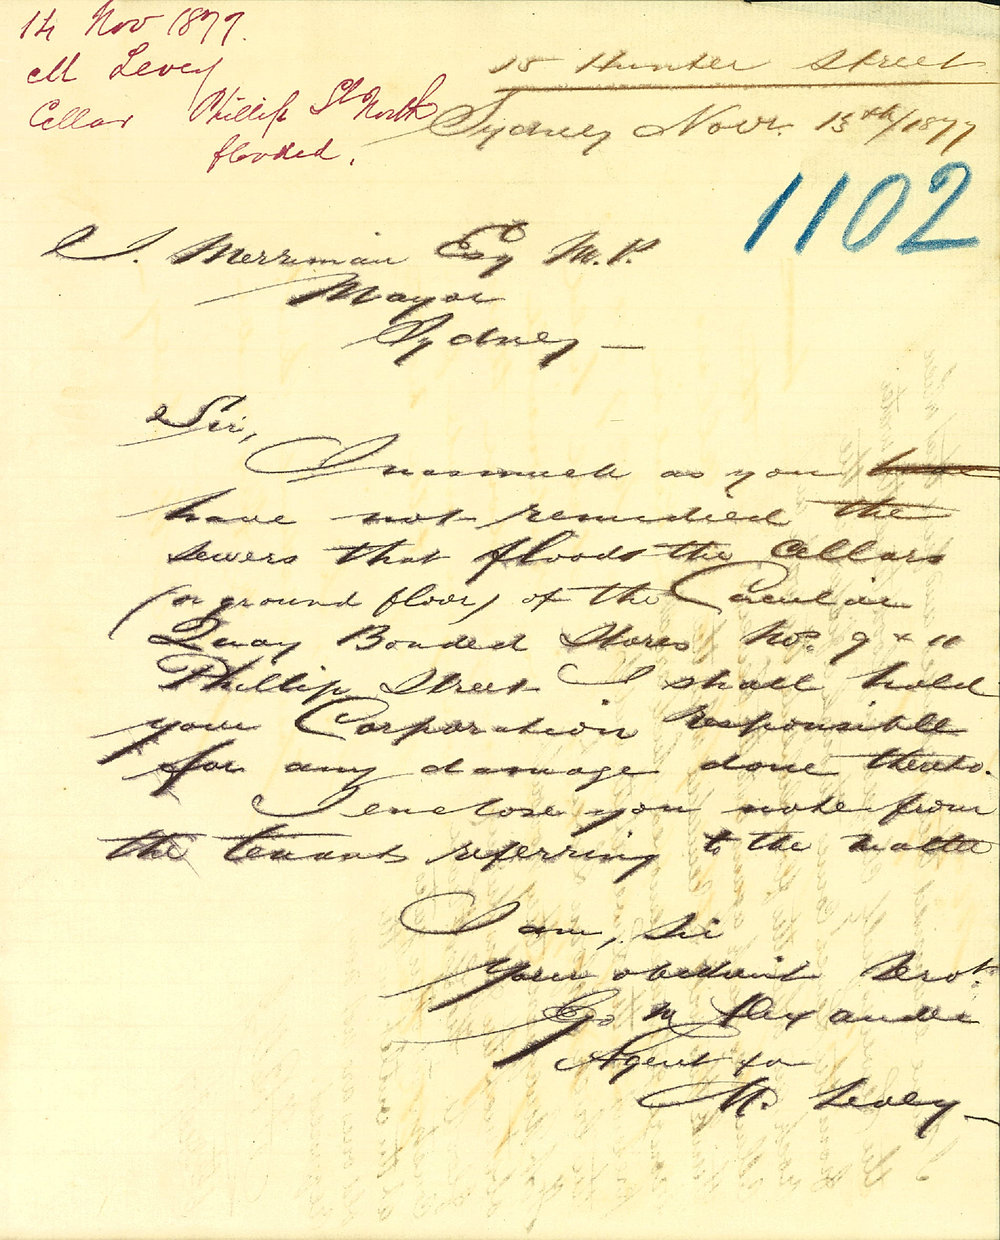 14 Nov 1877.
M Levey
Cellar Phillip St North
flooded.
15 Hunter Street
Sydney Novr. 13th/1877
1102
J. Merriman Esq M.P.
Mayor
Sydney —
Sir,
Inasmuch as you
have not remedied the
sewers that floods the cellars
(or ground floor) of the Circular
Quay Bonded Stores Nos. 9 & 11
Phillip Street I shall hold
your Corporation responsible
for any damage done thereto.
I enclose you note from
the tenants referring to the matter
I am, Sir
Your obedient Servt.
Geo M Alexander
Agent for
M. Levey —